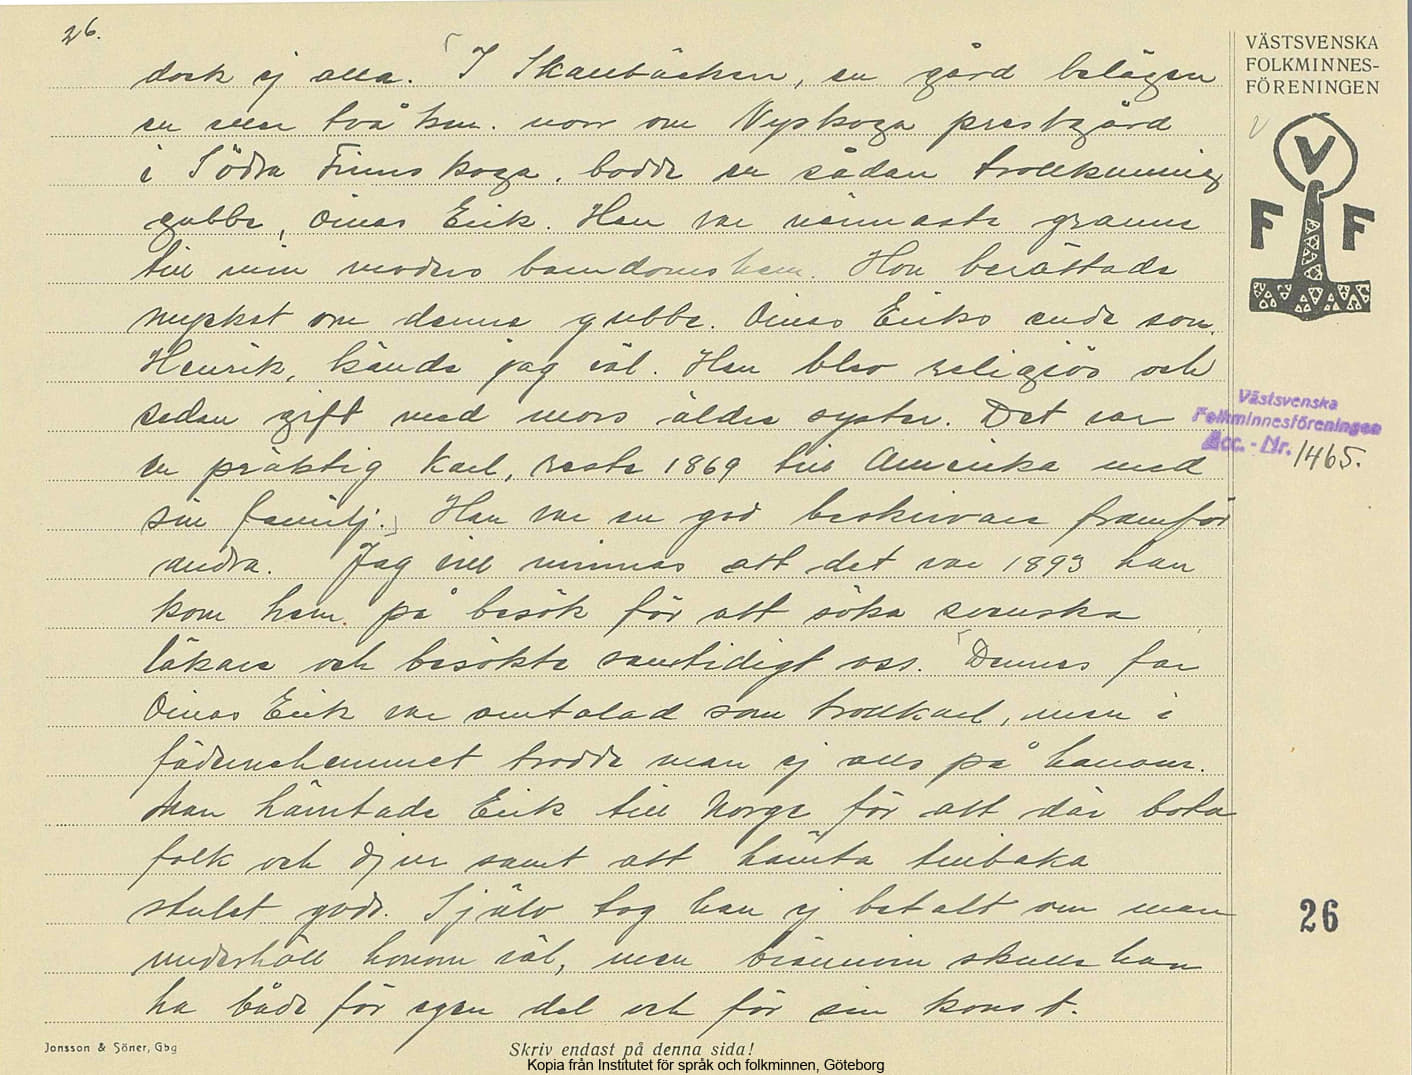 26.
dock ej alla. I Skallbäcken, en gård belägen
en eller två km. norr om Nyskoga prestgård
i Södra Finnskoga, bodde en sådan trollkunnig
gubbe, Oinas Erik. Han var närmaste granne
till min moders barndomshem. Hon berättade
mycket om denna gubbe. Oinas Eriks ende son,
Henrik, kände jag väl. Han blev religiös och
sedan gift med mors äldre syster. Det var
en präktig karl, reste 1869 till Amerika med
sin familj. Han var en god beskrivare framför
andra. Jag vill minnas att det var 1893 han
kom hem på besök för att söka svenska
läkare och besökte samtidigt oss. Dennes far
Oinas Erik var omtalad som trollkarl, men i
fädernehemmet trodde man ej alls på honom.
Man hämtade Erik till Norge för att där bota
folk och djur samt att hämta tillbaka
stulet gods. Själv tog han ej betalt om man
underhöll honom väl, men brännvin skulle han
ha både för egen del och för sin konst.
VÄSTSVENSKA
FOLKMINNES-
FÖRENINGEN
V
F F
Västsvenska
Folkminnesföreningen
Acc. - Nr. 1465.
26
Jonsson & Söner, Gbg
Skriv endast på denna sida!
Kopia från Institutet för språk och folkminnen, Göteborg